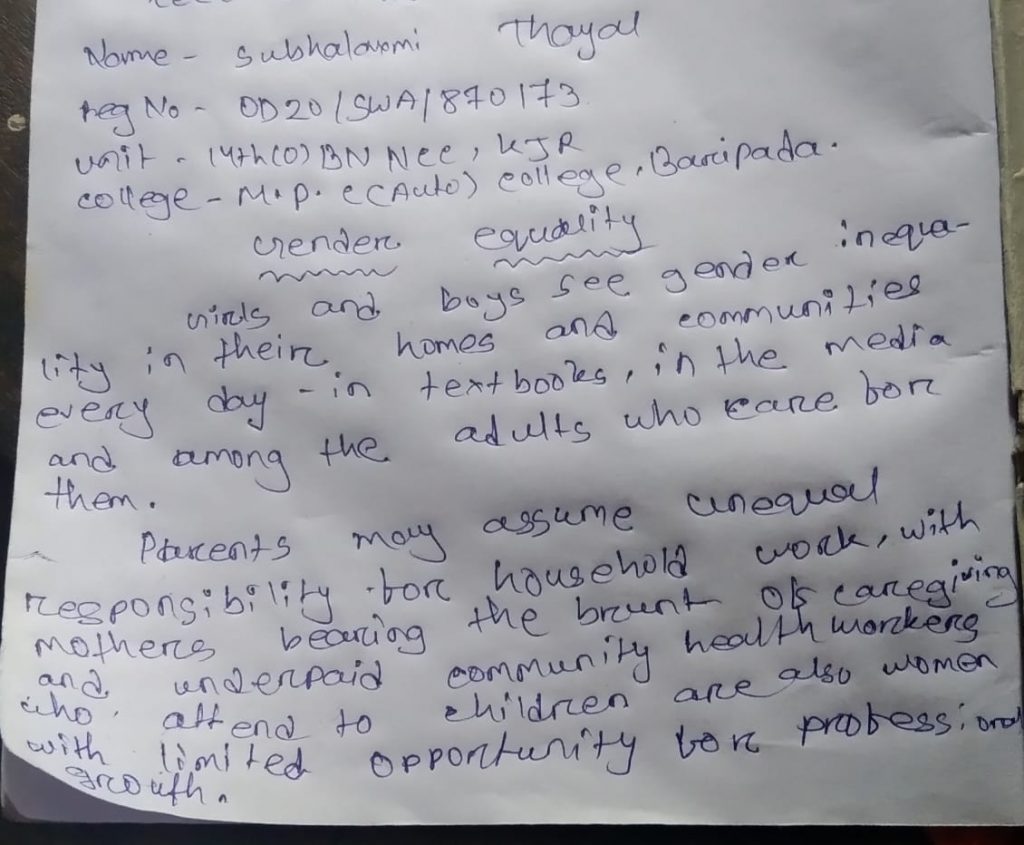 Name - Subhalaxmi Thayal
reg No - OD20/SWA/870173
unit - 14th(O) BN NCC, KJR
college - M.P.C (Auto) college, Baripada.
Gender equality
Girls and boys see gender inequa-
lity in their homes and communities
every day - in textbooks, in the media
and among the adults who care for
them.
Parents may assume unequal
responsibility for household work, with
mothers bearing the brunt of caregiving
and underpaid community health workers
who attend to children are also women
with limited opportunity for professional
growth.